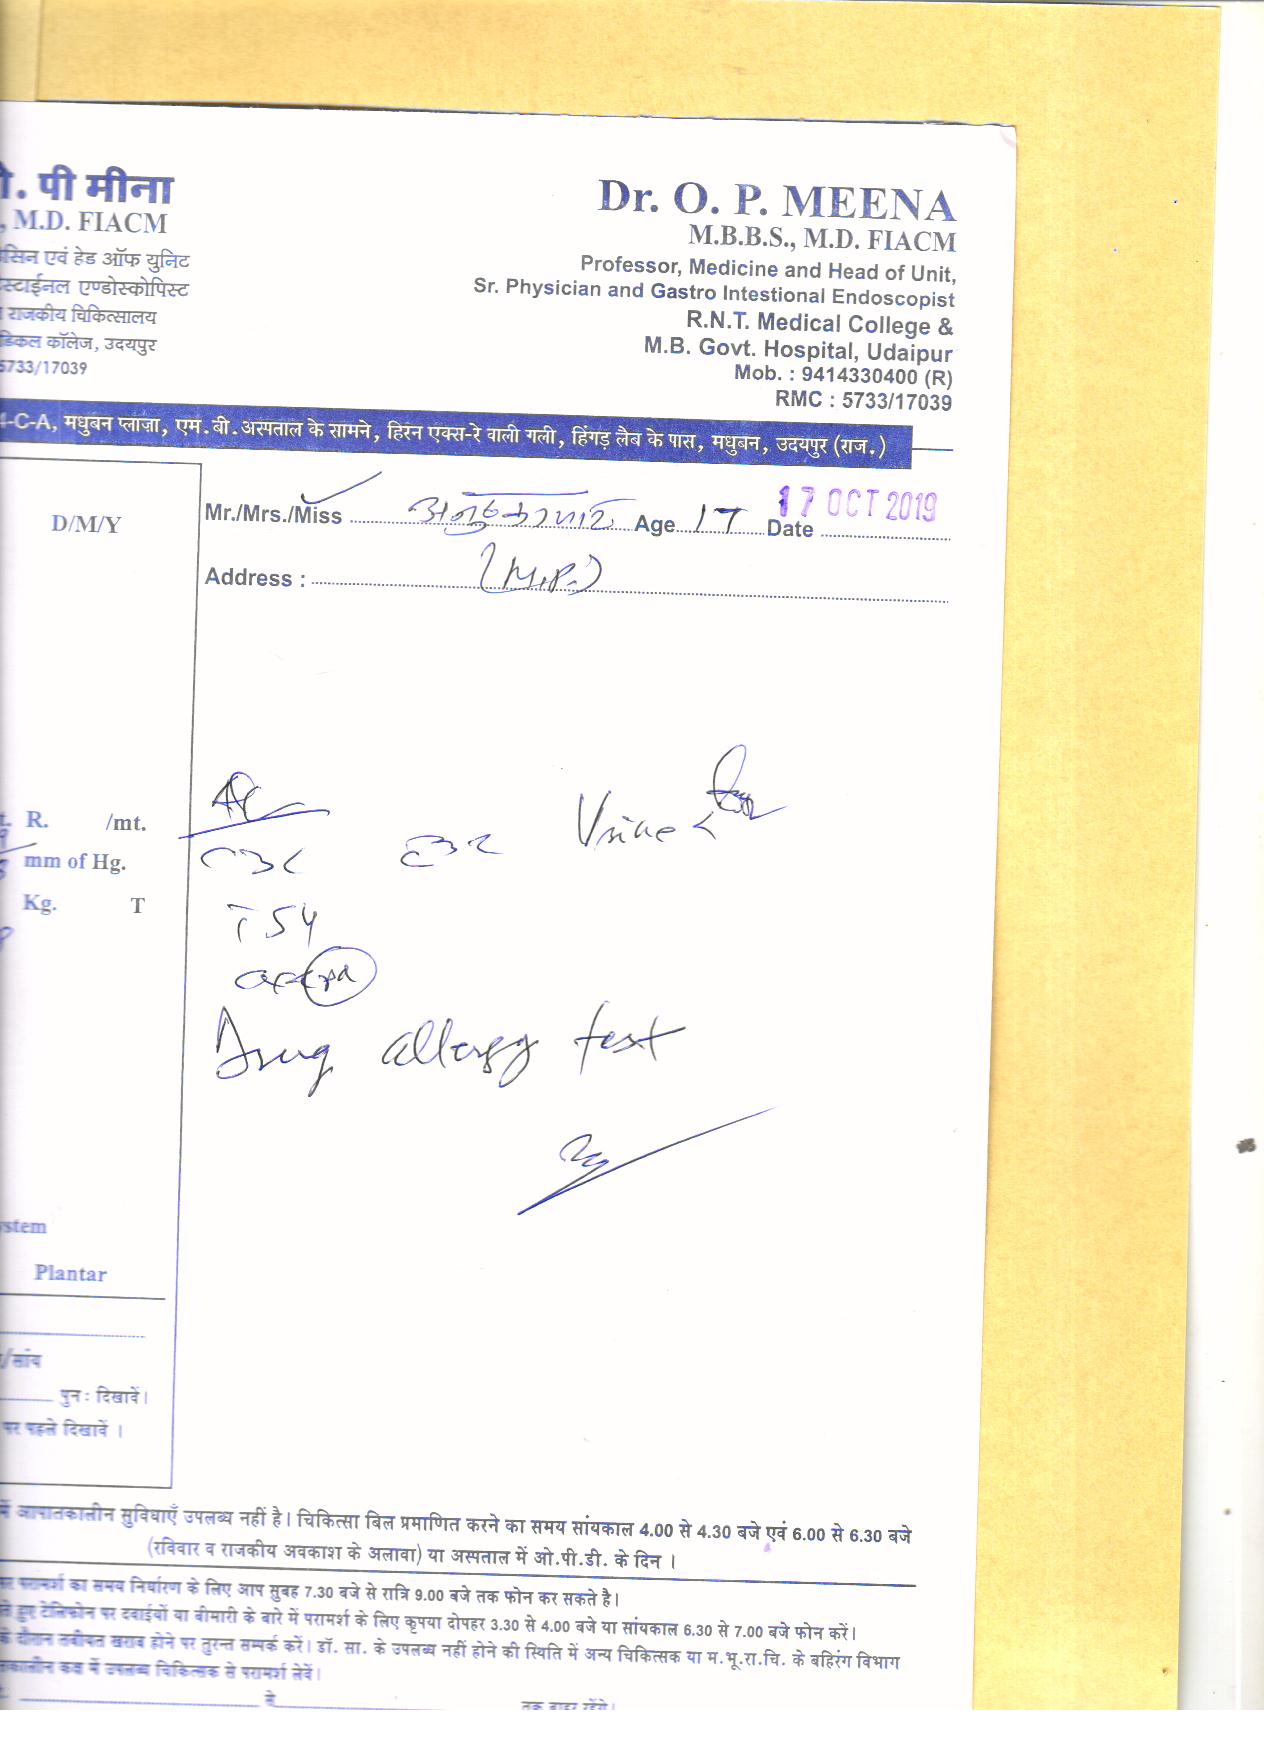 . पी मीना
, M.D. FIACM
सिन एवं हेड ऑफ युनिट
स्टाईनल एण्डोस्कोपिस्ट
राजकीय चिकित्सालय
डिकल कॉलेज, उदयपुर
5733/17039
Dr. O. P. MEENA
M.B.B.S., M.D. FIACM
Professor, Medicine and Head of Unit,
Sr. Physician and Gastro Intestional Endoscopist
R.N.T. Medical College &
M.B. Govt. Hospital, Udaipur
Mob. : 9414330400 (R)
RMC : 5733/17039
4-C-A, मधुबन प्लाज़ा, एम.बी.अस्पताल के सामने, हिरन एक्स-रे वाली गली, हिंगड़ लैब के पास, मधुबन, उदयपुर (राज.)
D/M/Y
Mr./Mrs./Miss Age 17 Date 17 OCT 2019
Address : (M.P.)
R. /mt.
mm of Hg.
Kg. T
CBC ESR Urine
TSH
Drug allergy test
ystem
Plantar
/सांय
पुनः दिखावें।
पर पहले दिखावें ।
में आपातकालीन सुविधाएँ उपलब्ध नहीं है। चिकित्सा बिल प्रमाणित करने का समय सांयकाल 4.00 से 4.30 बजे एवं 6.00 से 6.30 बजे
(रविवार व राजकीय अवकाश के अलावा) या अस्पताल में ओ.पी.डी. के दिन ।
पर परामर्श का समय निर्धारण के लिए आप सुबह 7.30 बजे से रात्रि 9.00 बजे तक फोन कर सकते है।
हुए टेलिफोन पर दवाईयों या बीमारी के बारे में परामर्श के लिए कृपया दोपहर 3.30 से 4.00 बजे या सांयकाल 6.30 से 7.00 बजे फोन करें।
के दौरान तबीयत खराब होने पर तुरन्त सम्पर्क करें। डॉ. सा. के उपलब्ध नहीं होने की स्थिति में अन्य चिकित्सक या म.भू.रा.चि. के बहिरंग विभाग
कालीन कक्ष में उपलब्ध चिकित्सक से परामर्श लेवें।
से तक बाहर रहेंगे।